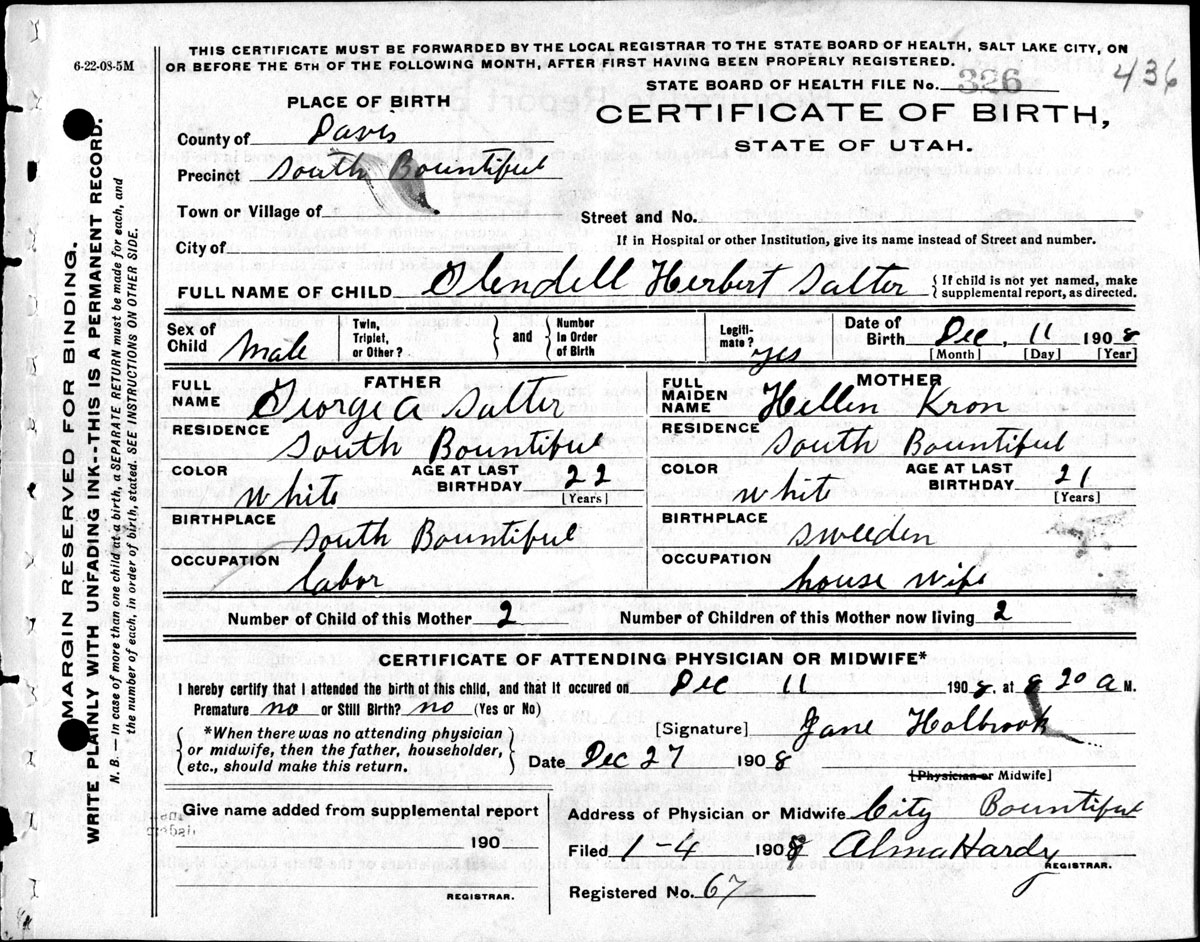 THIS CERTIFICATE MUST BE FORWARDED BY THE LOCAL REGISTRAR TO THE STATE BOARD OF HEALTH, SALT LAKE CITY, ON
6-22-08-5M
OR BEFORE THE 5TH OF THE FOLLOWING MONTH, AFTER FIRST HAVING BEEN PROPERLY REGISTERED.
STATE BOARD OF HEALTH FILE No. 326 436
PLACE OF BIRTH
CERTIFICATE OF BIRTH,
STATE OF UTAH.
County of Davis
Precinct South Bountiful
Town or Village of
Street and No.
City of
If in Hospital or other Institution, give its name instead of Street and number.
FULL NAME OF CHILD Glendell Herbert Salter { If child is not yet named, make
supplemental report, as directed.
Sex of Child Male Twin, Triplet, or Other? } and { Number in Order of Birth Legiti-mate? yes Date of Birth Dec, 11 1908
[Month] [Day] [Year]
FATHER MOTHER
FULL NAME George A Salter FULL MAIDEN NAME Hellen Kron
RESIDENCE South Bountiful RESIDENCE South Bountiful
COLOR White AGE AT LAST BIRTHDAY 22 [Years] COLOR White AGE AT LAST BIRTHDAY 21 [Years]
BIRTHPLACE South Bountiful BIRTHPLACE Sweeden
OCCUPATION labor OCCUPATION house wife
Number of Child of this Mother 2 Number of Children of this Mother now living 2
CERTIFICATE OF ATTENDING PHYSICIAN OR MIDWIFE*
I hereby certify that I attended the birth of this child, and that it occured on Dec 11 1908 at 8 20 a M.
Premature no or Still Birth? no (Yes or No)
[Signature] Jane Holbrook
{ *When there was no attending physician
or midwife, then the father, householder,
etc., should make this return. }
Date Dec 27 1908
[Physician or Midwife]
Give name added from supplemental report
190
REGISTRAR.
Address of Physician or Midwife City Bountiful
Filed 1-4 1909 Alma Hardy
REGISTRAR.
Registered No. 67
MARGIN RESERVED FOR BINDING.
WRITE PLAINLY WITH UNFADING INK--THIS IS A PERMANENT RECORD.
N. B.—In case of more than one child at a birth, a SEPARATE RETURN must be made for each, and
the number of each, in order of birth, stated. SEE INSTRUCTIONS ON OTHER SIDE.